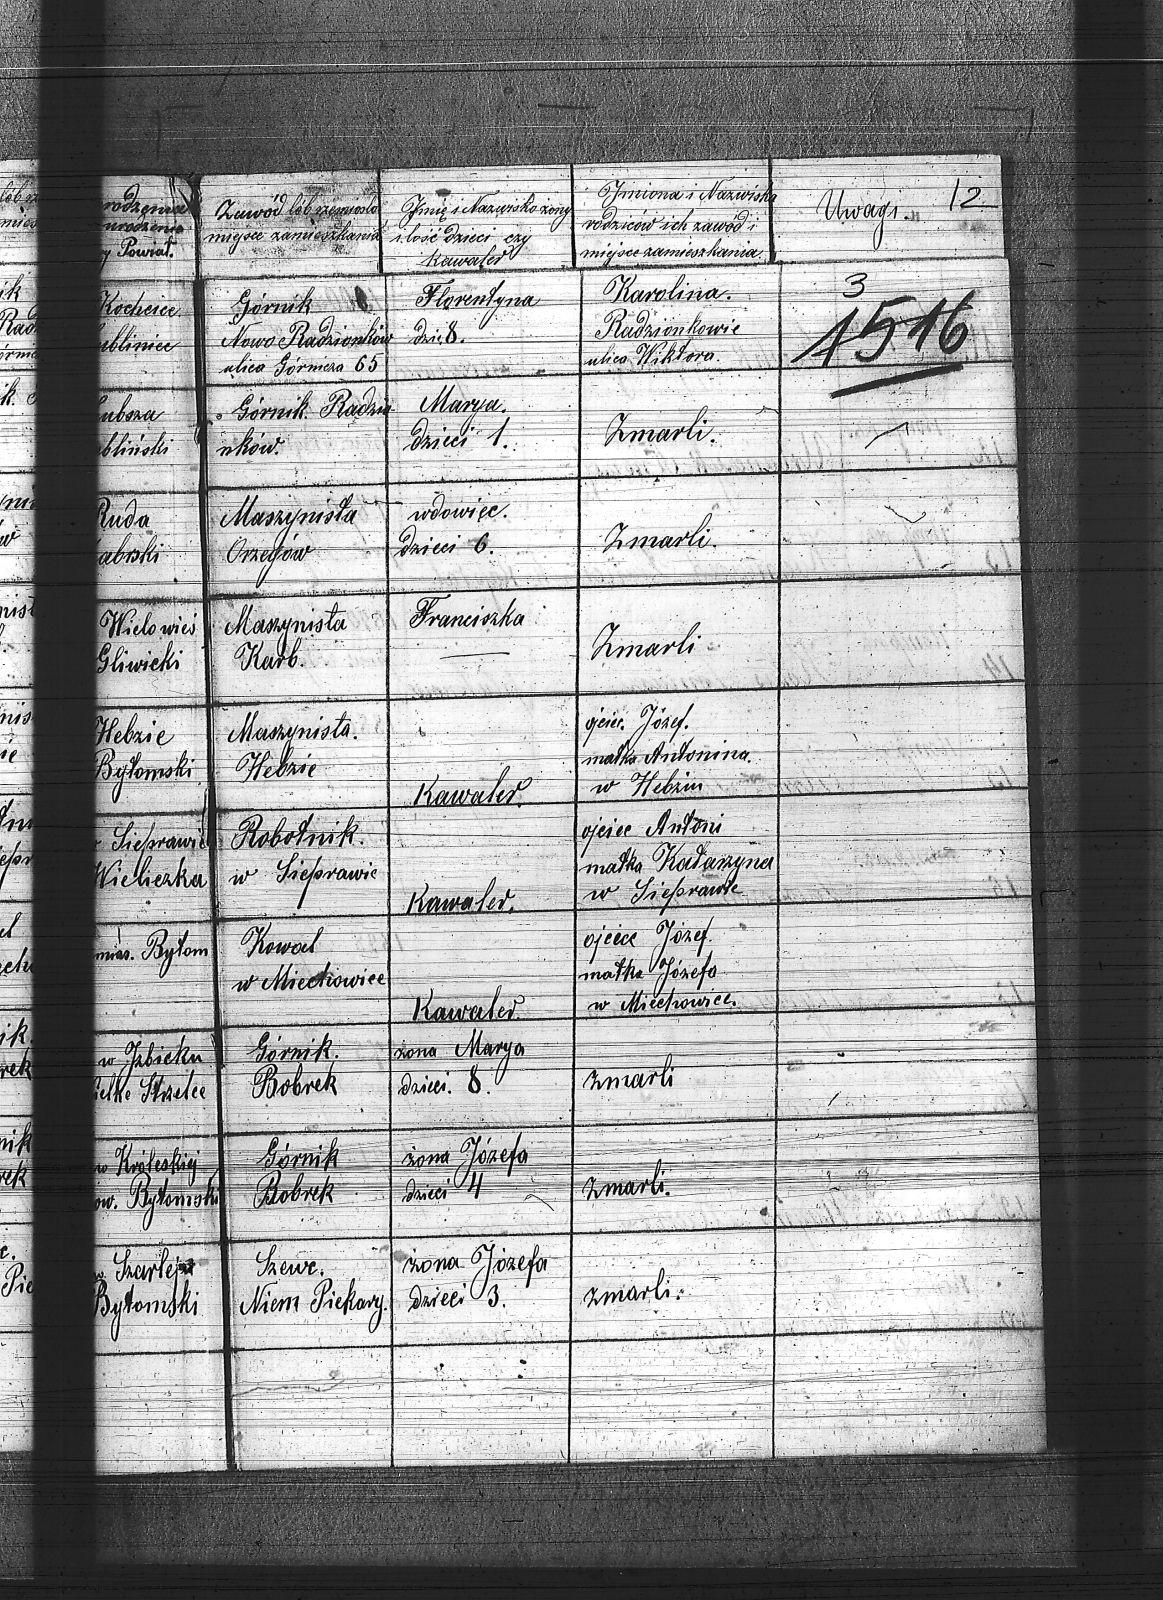 12
rodzenia
urodzenia
y Powiat.
Zawód lób rzemiosło
miejsce zamieszkania
Jmię i Nazwisko żony
i ilość dzieci czy
kawaler
Jmiona i Nazwiska
rodziców ich zawód i
miejsce zamieszkania.
Uwagi.
Kochcice
ubliniec
Górnik
Nowo Radzionków
ulica Górnicza 65
Florentyna
dzie 8.
Karolina.
Radzionkowie
ulica Wiktora.
3
1516
Lubsza
ubliński
Górnik. Radzio
nków.
Marya.
dzieci 1.
Zmarli.
Ruda
abrski
Maszynista
Orzegów
wdowiec.
dzieci 6.
Zmarli.
Wielowieś
Gliwicki
Maszynista
Karb.
Franciszka
Zmarli
Hebzie
Bytomski
Maszynista.
Hebzie
Kawaler.
ojciec. Józef.
matka Antonina.
w Hebziu
Sieprawie
Wieliczka
Robotnik.
w Sieprawie
Kawaler.
ojciec Antoni
matka Katarzyna
w Sieprawie
Bytom
Kowal
w Miechowice
Kawaler.
ojciec Józef.
matka Józefa
w Miechowice.
w Jzbicku
ielke Strzelce
Górnik.
Bobrek
żona Marya
dzieci. 8.
zmarli
w Króleskiej
ow. Bytomski
Górnik
Bobrek
żona Józefa
dzieci 4
zmarli.
Szarlej
Bytomski
Szewc.
Niem Piekary.
żona Józefa
dzieci 3.
zmarli.